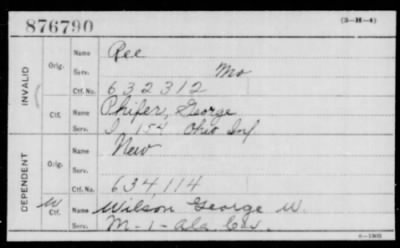 876790
(3-H-4)
INVALID
Orig.
Name Ree
Serv. Mo
Ctf. No. 632312
Ctf.
Name Phifer, George
Serv. I 154 Ohio Inf
DEPENDENT
Orig.
Name New
Serv.
Ctf. No. 634,114
W Ctf.
Name Wilson George W.
Serv. M-1-Ala. Cav.